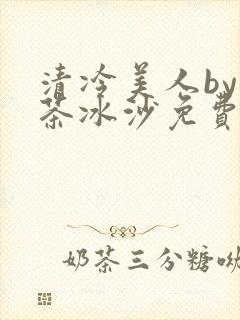 清冷美人by
茶冰沙免費
奶茶三分糖呦